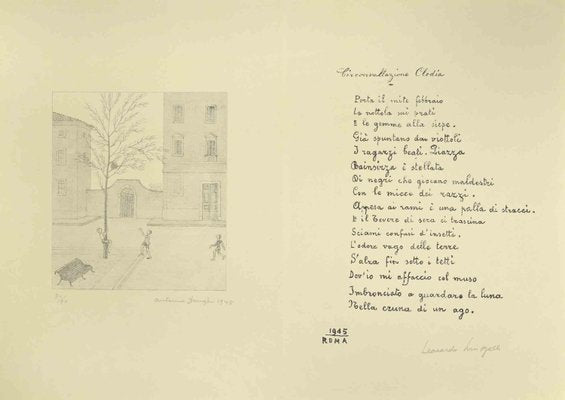 Antonio Donghi 1945
Circonvallazione Clodia
Porta il mite febbraio
La nottola sui prati
E le gemme alla siepe.
Già spuntano dai viottoli
I ragazzi beati. Piazza
Bainsizza è stellata
Di negri che giocano maldestri
Con le micce dei razzi.
Appesa ai rami è una palla di stracci.
E il Tevere di sera ci trascina
Sciami confusi d'insetti.
L'odore vago delle terre
S'alza fin sotto i tetti
Dov'io mi affaccio col muso
Imbronciato a guardare la luna
Nella cruna di un ago.
1945
ROMA
Leonardo Sinisgalli